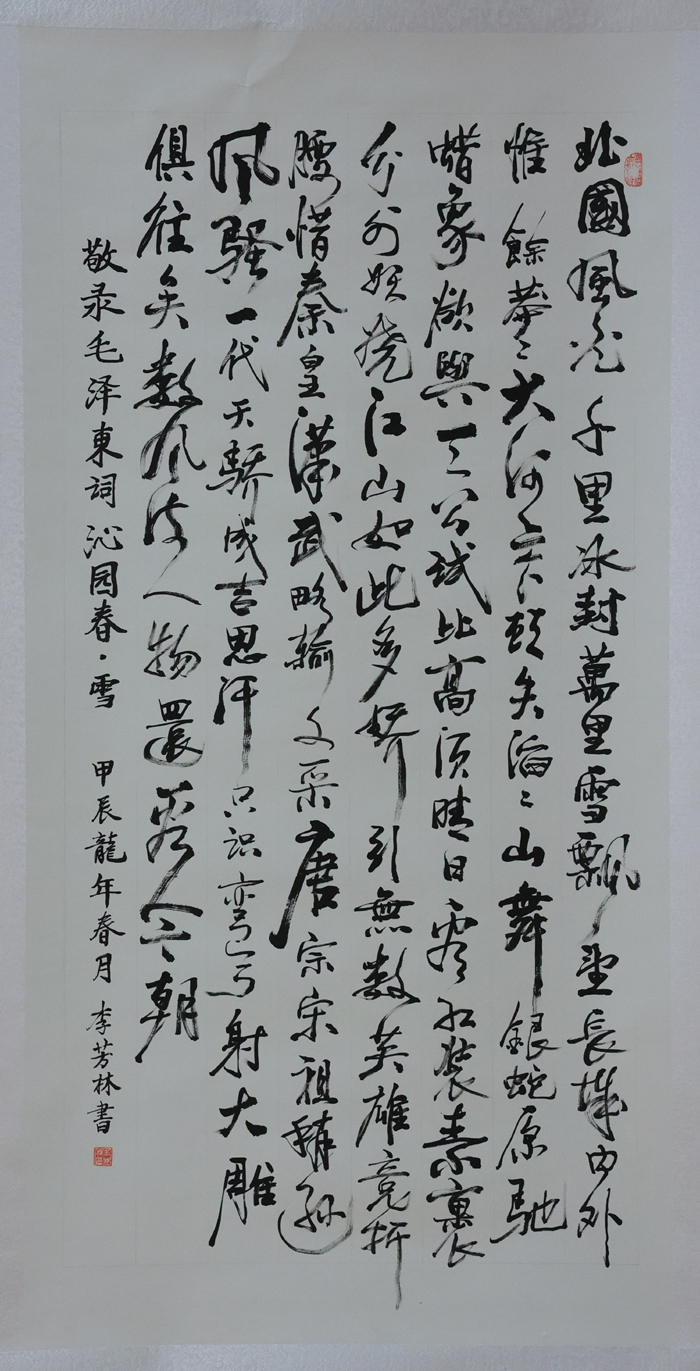 北國風光千里冰封萬里雪飄望長城内外
惟餘莽〻大河上下頓失滔〻山舞銀蛇原馳
蜡象欲與天公試比高須晴日看紅裝素裹
分外妖嬈江山如此多嬌引無數英雄竞折
腰惜秦皇漢武略輸文采唐宗宋祖稍遜
风騷一代天驕成吉思汗只识弯弓射大雕
俱往矣數风流人物還看今朝
敬录毛泽東詞沁园春·雪 甲辰龍年春月 李芳林書